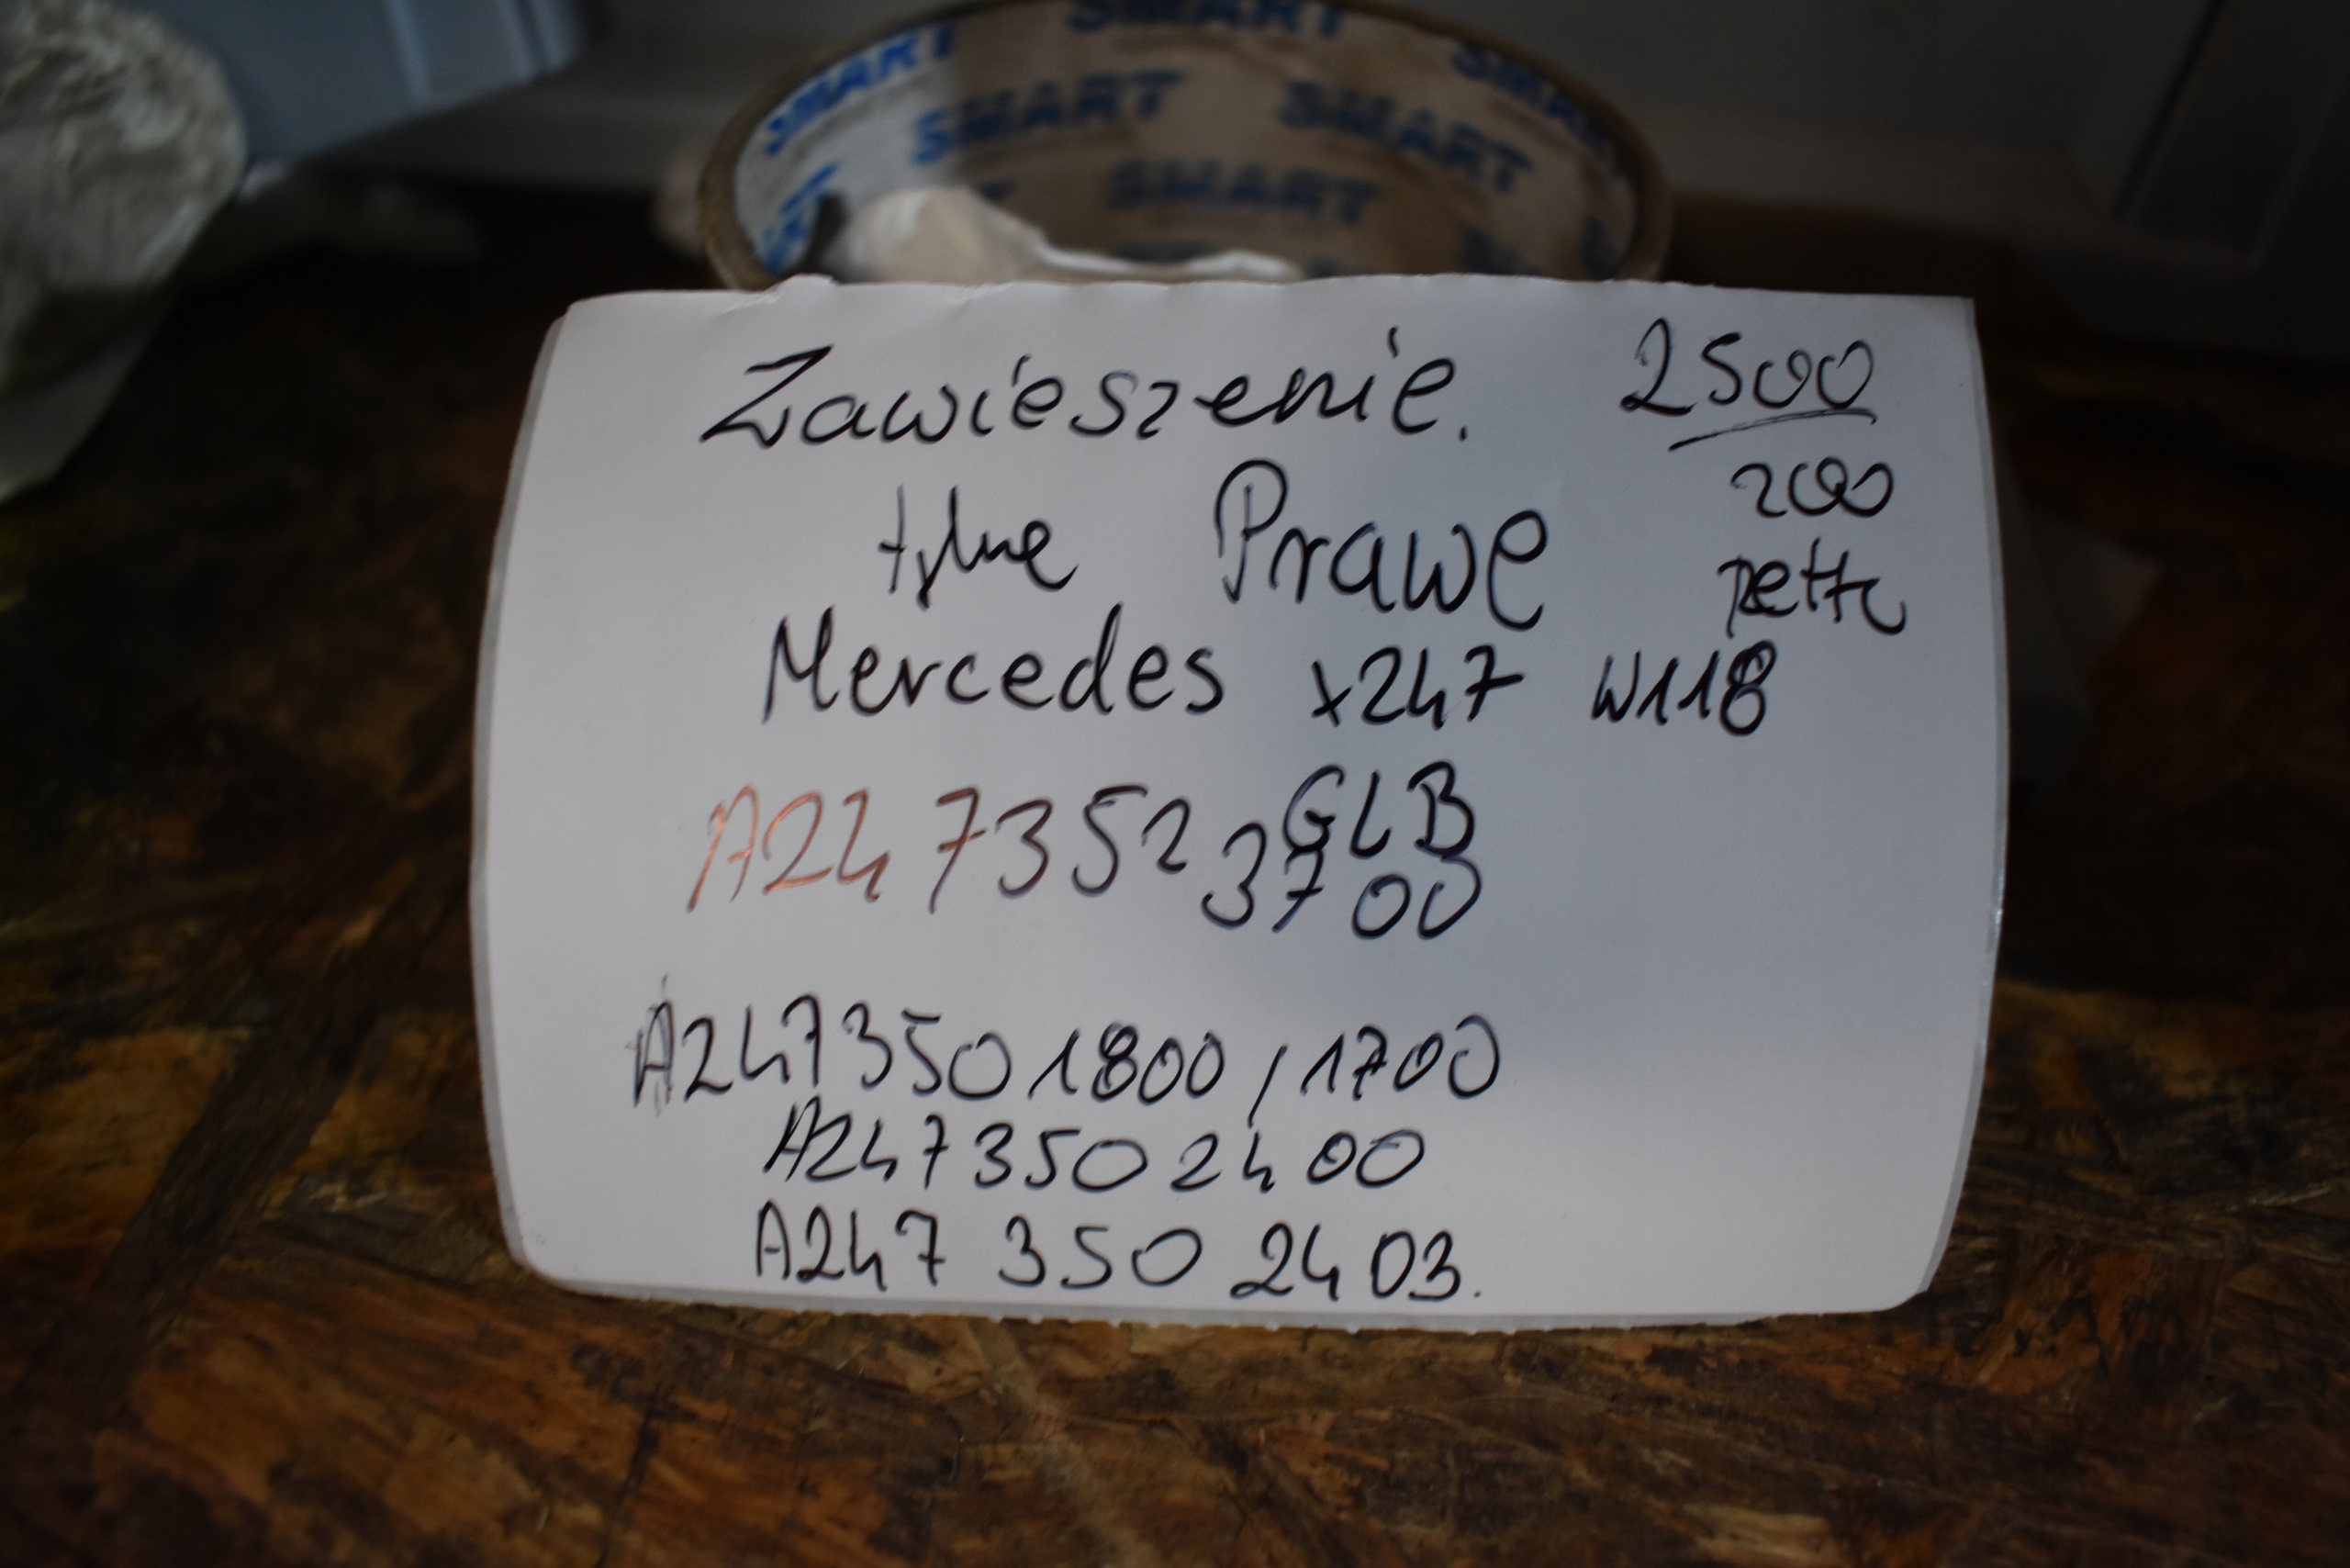 SMART SMART SMART
SMART SMART SMART
SMART
Zawieszenie. 2500
tylne Prawe 200
Mercedes x247 W118
GLB
A247 352 3700
A247350 1800 / 1700
A247 350 2400
A247 350 2403.